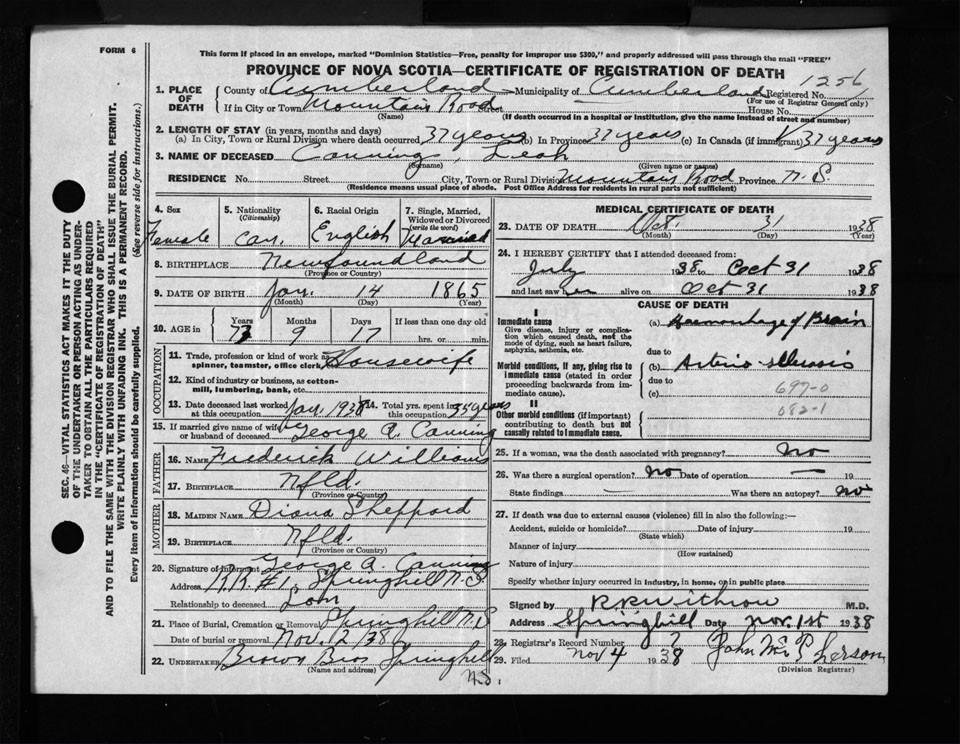 FORM 6
This form if placed in an envelope, marked "Dominion Statistics—Free, penalty for improper use $300," and properly addressed will pass through the mail "FREE"
PROVINCE OF NOVA SCOTIA—CERTIFICATE OF REGISTRATION OF DEATH
1256
1. PLACE OF DEATH
County of Cumberland Municipality of Cumberland Registered No.
(For use of Registrar General only)
If in City or Town Mountain Road Street House No.
(Name) (If death occurred in a hospital or institution, give the name instead of street and number)
2. LENGTH OF STAY (in years, months and days)
(a) In City, Town or Rural Division where death occurred 37 years (b) In Province 37 years (c) In Canada (if immigrant) 37 years
3. NAME OF DECEASED Canning, Leah
(Surname) (Given name or names)
RESIDENCE No. Street City, Town or Rural Division Mountain Road Province N.S.
(Residence means usual place of abode. Post Office Address for residents in rural parts not sufficient)
4. Sex Female
5. Nationality (Citizenship) Can.
6. Racial Origin English
7. Single, Married, Widowed or Divorced (write the word) Married
8. BIRTHPLACE Newfoundland
(Province or Country)
9. DATE OF BIRTH Jan. 14 1865
(Month) (Day) (Year)
10. AGE in Years Months Days If less than one day old
73 9 17 hrs. or min.
OCCUPATION
11. Trade, profession or kind of work as spinner, teamster, office clerk, Housewife
12. Kind of industry or business, as cotton-mill, lumbering, bank, etc.
13. Date deceased last worked at this occupation Jan. 1938 14. Total yrs. spent in this occupation 55 years
15. If married give name of wife or husband of deceased George A. Canning
FATHER
16. NAME Frederick Williams
17. BIRTHPLACE Nfld.
(Province or Country)
MOTHER
18. MAIDEN NAME Diana Sheppard
19. BIRTHPLACE Nfld.
(Province or Country)
20. Signature of Informant George A. Canning
Address R.R.#1, Springhill N.S.
Relationship to deceased Son
21. Place of Burial, Cremation or Removal Springhill N.S
Date of burial or removal Nov. 2/38
22. UNDERTAKER Brown Bros Springhill
(Name and address) N.S.
MEDICAL CERTIFICATE OF DEATH
23. DATE OF DEATH Oct. 31 1938
(Month) (Day) (Year)
24. I HEREBY CERTIFY that I attended deceased from:
July 1938 to Oct 31 1938
and last saw her alive on Oct 31 1938
CAUSE OF DEATH
I
Immediate cause
Give disease, injury or complication which caused death, not the mode of dying, such as heart failure, asphyxia, asthenia, etc.
(a) Haemorrhage of Brain
due to
Morbid conditions, if any, giving rise to immediate cause (stated in order proceeding backwards from immediate cause).
(b) Arterio-sclerosis
due to
(c) 697-0
682-1
II
Other morbid conditions (if important) contributing to death but not causally related to immediate cause.
25. If a woman, was the death associated with pregnancy? no
26. Was there a surgical operation? no Date of operation — 19
State findings — Was there an autopsy? no
27. If death was due to external causes (violence) fill in also the following:—
Accident, suicide or homicide? Date of injury 19
(State which)
Manner of injury
(How sustained)
Nature of injury
Specify whether injury occurred in industry, in home, or in public place
Signed by Withrow M.D.
Address Springhill Date Nov. 1st 1938
28. Registrar's Record Number 7
29. Filed Nov 4 1938 John McPherson
(Division Registrar)
SEC. 46—VITAL STATISTICS ACT MAKES IT THE DUTY
OF THE UNDERTAKER OR PERSON ACTING AS UNDERTAKER TO OBTAIN ALL THE PARTICULARS REQUIRED
IN THE "CERTIFICATE OF REGISTRATION OF DEATH"
AND TO FILE THE SAME WITH THE DIVISION REGISTRAR WHO SHALL ISSUE THE BURIAL PERMIT.
WRITE PLAINLY WITH UNFADING INK. THIS IS A PERMANENT RECORD.
Every item of information should be carefully supplied. (See reverse side for instructions.)